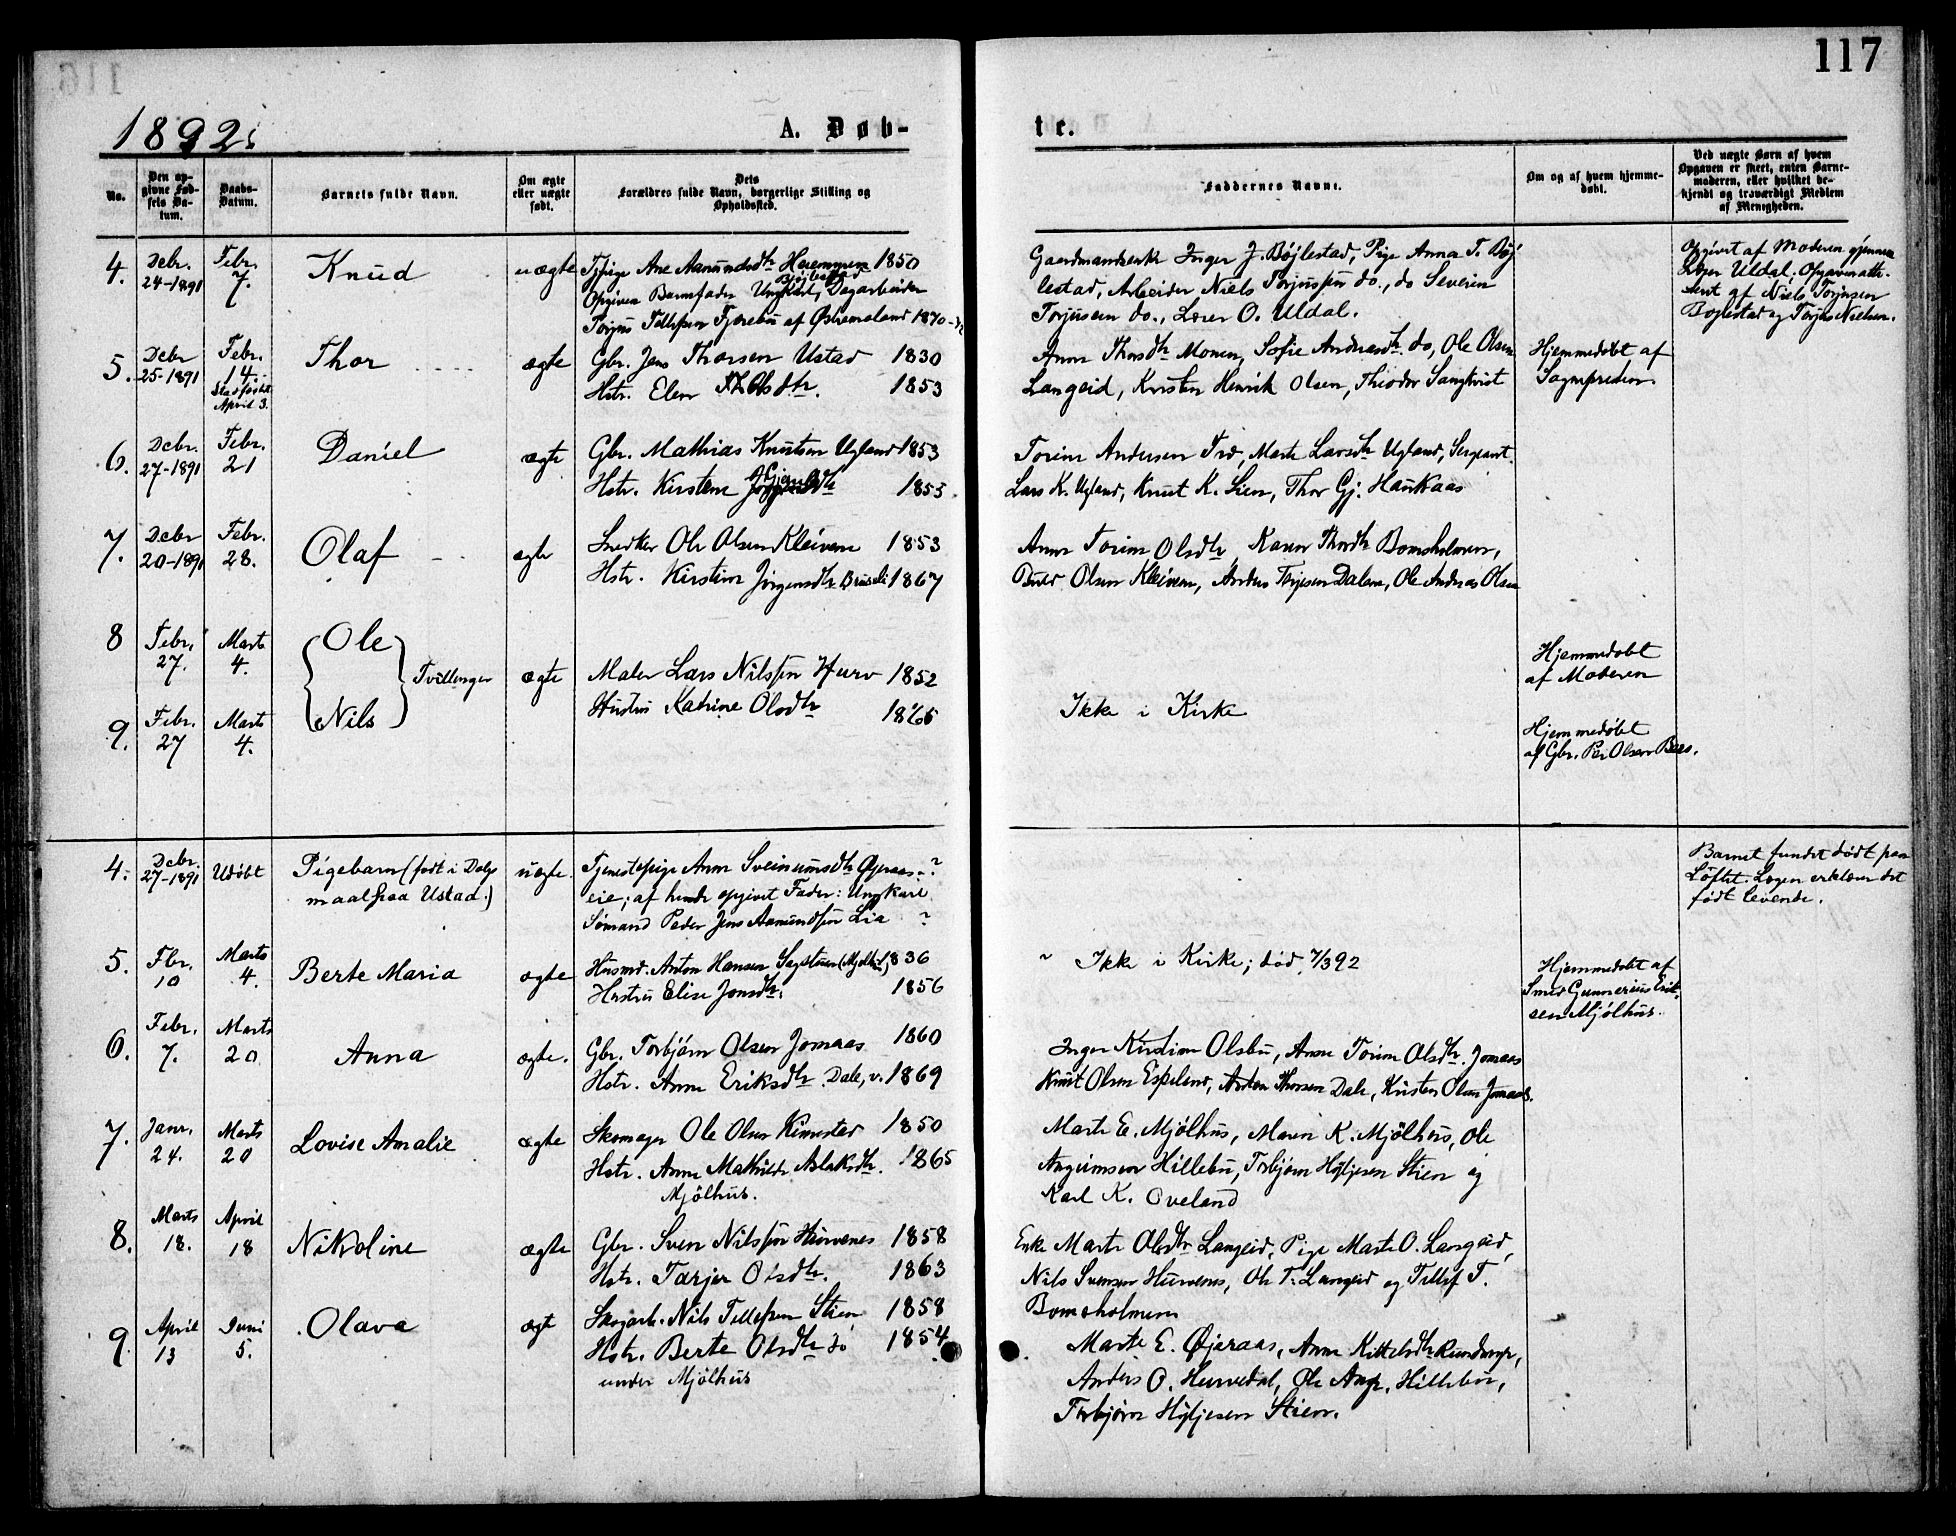 117
1892.
A. Døb-
te.
No.
Den op-
givne Fød-
sels Da-
tum.
Daabs-
Datum.
Barnets fulde Navn.
Om ægte
eller uægte
født.
Dets
Forældres fulde Navn, borgerlige Stilling og
Opholdssted.
Faddernes Navne.
Om og af hvem hjemme-
døbt.
Ved uægte Børn af hvem
Opgaven er skeet, enten Barne-
moderen, eller hvilket be-
kjendt og troværdigt Medlem
af Menigheden.
4.
Debr.
24-1891
Febr.
7.
Knud
uægte
Tjpige Ane Aanundsdtr 1850
Opgiven Barnefader Ungkarl, Dagarbeider
Torjus Tellefsen Fjærebu af 1870
Gaardmandsenke Inger J. Bøjlestad, Pige Anna T. Bøj
lestad, Arbeider Niels Torjussen do., do Severin
Torjusen do., Lærer O. Uldal.
Opgivet af Moderen gjennem
Lærer Uldal. Opgaven atte-
steret af Niels Torjusen
Bøjlestad og Torjus Nielsen.
5.
Debr
25-1891
Febr.
14.
Stadfæstet
April 3.
Thor
ægte
Gbr. Jens Thorsen Ustad 1830
Hstr. Elen Olsdtr. 1853
Anne Thorsdtr Monen, Sofie Andersdtr. do, Ole Olsen
Langeid, Kristen Henrik Olsen, Theodor Sangkvist
Hjemmedøbt af
Sognepresten.
6.
Debr.
27-1891
Febr.
21
Daniel
ægte
Gbr. Mathias Knutsen Ugland 1853
Hstr. Kirstene 1853.
Torine Andersen Træ, Marte Larsdtr Ugland, Sergeant.
Lars K. Ugland, Knut K. Lien, Thor Gj. Haukaas
7.
Debr
20-1891
Febr.
28.
Olaf
ægte
Snedker Ole Olsen Kleivene 1853
Hstr. Kirstine Jörgensdtr 1867
Anne Torine Olsdtr, Karen Thorsdtr Bomsholmen,
Olsen Kleiven, Anders Terjesen Dalene, Ole Andreas Olsen
8
Febr.
27.
Marts
4.
Ole
Tvillinger
ægte
Maler Lars Nilssen Hurv 1852
Hustru Katrine Olsdtr 1865
Ikke i Kirke
Hjemmedøbt
af Moderen
9.
Febr.
27
Marts
4.
Nils
Hjemmedøbt
af Gbr. Per Olsen Baas.
4.
Debr.
27-1891
Udøbt
Pigebarn (født i Dels
maal fra Ustad.)
uægte.
Tjenestepige Anne Sveinumsdtr Øjeraas- ?
eie; af hende opgivet Fader: Ungkarl
Sømand Peder Jens Aamundsen Lia ?
Barnet fundet dødt paa
Løftet. Lægen erklærer det
født levende.
5.
Fbr.
10
Marts
4.
Berte Maria
ægte
Husmd. Anton Hansen Sagstuen (Mjølhus) 1836
Hustru Elise Jonsdtr. 1856
Ikke i Kirke; død 7/3 92
Hjemmedøbt af
Smed Gunnerius Erik-
sen Mjølhus.
6.
Febr.
7.
Marts
20
Anna
ægte.
Gbr. Torbjörn Olsen Jomaas 1860
Hstr. Anne Eriksdtr. Dale, v. 1869
Inger Kirstine Olsbu, Anne Torine Olsdtr. Jomaas
Knut Olsen Espeland, Anton Thorsen Dale, Kristen Olsen Jomaas.
7.
Janr.
24.
Marts
20
Lovise Amalie
ægte
Skomager Ole Olsen Rimestad 1850
Hstr. Anne Mathilde Aslaksdtr. 1865
Mjölhus.
Marte E. Mjølhus, Maren K. Mjølhus, Ole
Asgrimsen Hillebu, Torbjørn Høljesen Stien og
Karl K. Oveland
8.
Marts
18.
April
18
Nikoline
ægte
Gbr. Sven Nilssen Hurvenes 1858
Hstr. Tarjer Olsdtr. 1863
Enke Marte Olsdtr Langeid, Pige Marte O. Langeid,
Nils Svensen Hurvenes, Ole T. Langeid og Tellef T.
Bomsholmen
9
April
13
Juni
5.
Olava
ægt
Skogarb. Nils Tellefsen Stien 1858
Hstr. Berte Olsdtr do 1854
under Mjölhus
Marte E. Øjeraas, Anne Kittelsdtr
Anders O. Hurvedal, Ole Asgr. Hillebu,
Torbjørn Høljesen Stien.